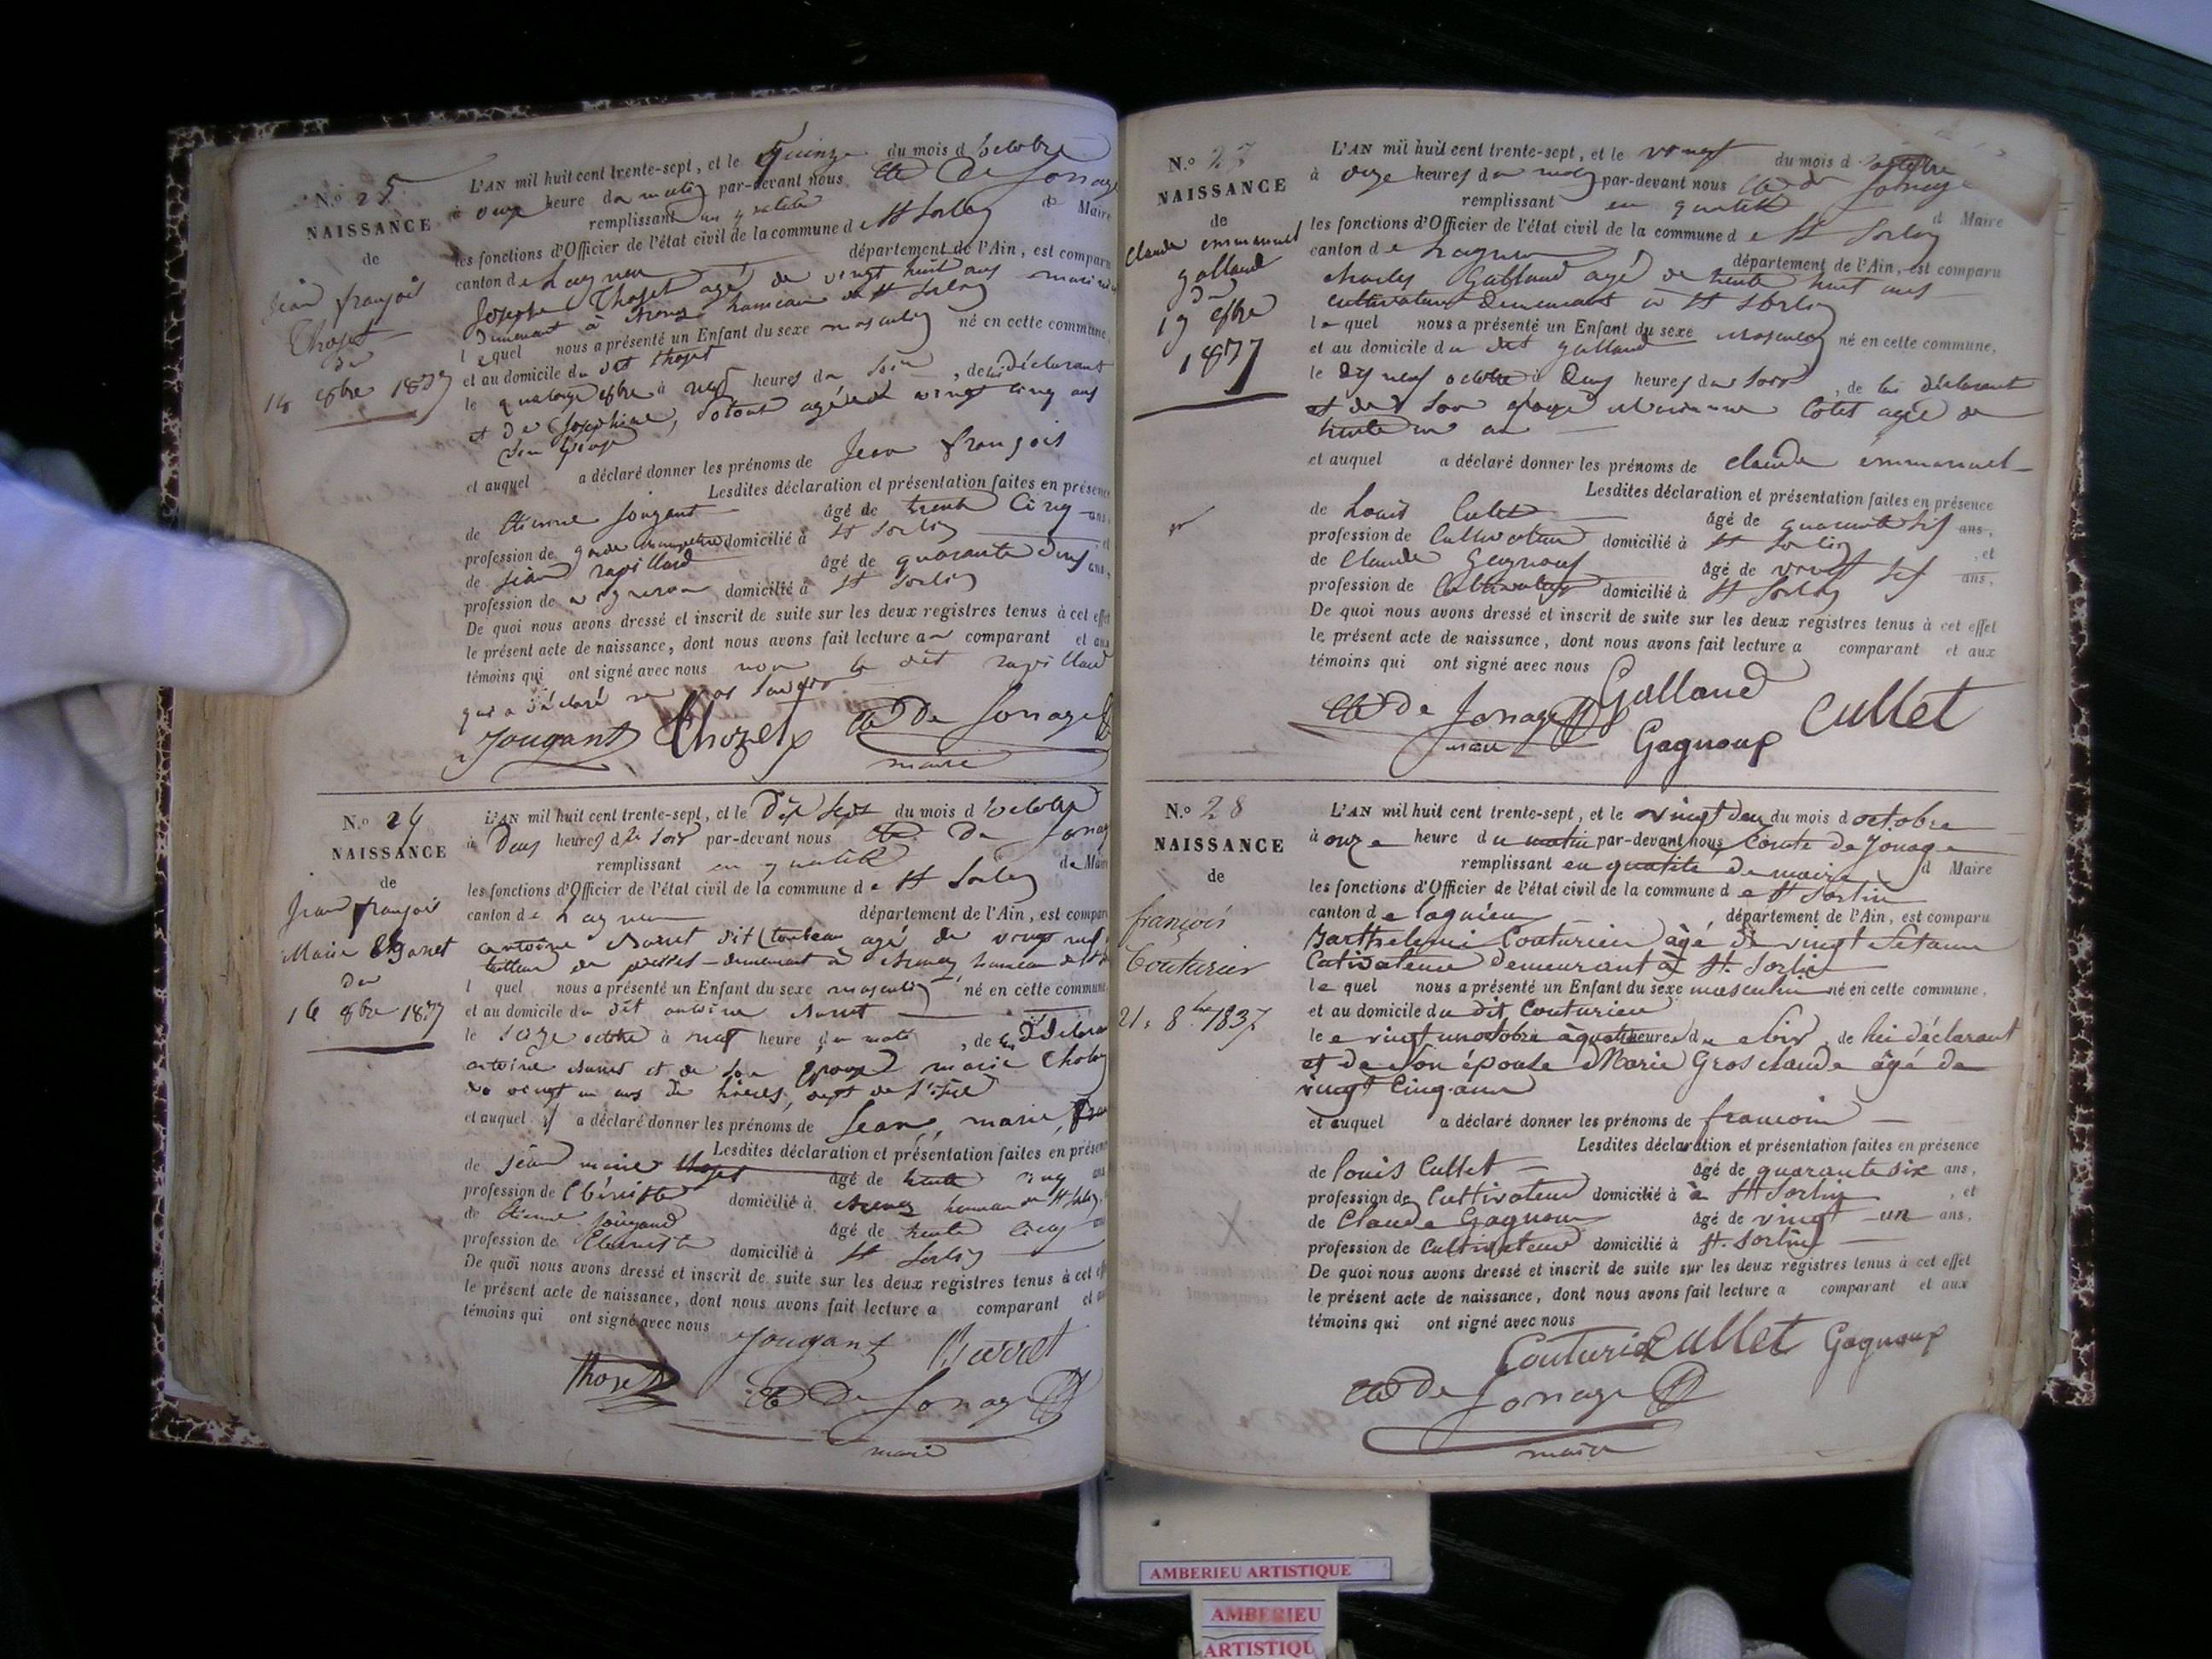 N.º 25
NAISSANCE
de
Jean françois
Thozet
du
14 8bre 1837
L'AN mil huit cent trente-sept, et le quinze du mois d'octobre
à onze heure du matin par-devant nous Cte De Jonage
remplissant en qualité de Maire
les fonctions d'Officier de l'état civil de la commune de St Sorlin
canton de Lagnieu département de l'Ain, est comparu
Joseph Thozet agé de vingt huit ans
demeurant à hameau de St Sorlin
lequel nous a présenté un Enfant du sexe masculin né en cette commune,
et au domicile du dit thozet
le quatorze 8bre à neuf heures du soir, de lui Déclarant
et de Joséphine, agée de vingt cinq ans
son épouse
et auquel a déclaré donner les prénoms de Jean françois
Lesdites déclaration et présentation faites en présence
de Etienne Jougant âgé de trente Cinq ans,
profession de garde champetre domicilié à St Sorlin et
de jean ravillard âgé de quarante deux ans,
profession de vigneron domicilié à St Sorlin
De quoi nous avons dressé et inscrit de suite sur les deux registres tenus à cet effet
le présent acte de naissance, dont nous avons fait lecture au comparant et aux
témoins qui ont signé avec nous non le dit ravillard
qui a déclaré ne pas savoir
Jougant Thozet Cte De Jonage
maire
N.º
NAISSANCE
de
Jean françois
Marie
du
16 8bre 1837
L'AN mil huit cent trente-sept, et le Dix sept du mois d'octobre
à Deux heures du soir par-devant nous Cte De Jonage
remplissant en qualité de Maire
les fonctions d'Officier de l'état civil de la commune de St Sorlin
canton de Lagnieu département de l'Ain, est comparu
antoine dit agé de vingt neuf
tailleur de pierres demeurant à hameau de St
l quel nous a présenté un Enfant du sexe masculin né en cette commune
et au domicile du dit antoine
le seize octobre à neuf heure du matin, de lui Déclarant
antoine et de son épouse marie
de vingt un ans de hières, dept de l'isère
et auquel il a déclaré donner les prénoms de Jean, marie,
Lesdites déclaration et présentation faites en présence
de jean marie thozet âgé de trente cinq ans
profession de Ebéniste domicilié à hameau de St Sorlin
de Etienne Jougand âgé de trente cinq
profession de Ebeniste domicilié à St Sorlin
De quoi nous avons dressé et inscrit de suite sur les deux registres tenus à cet effet
le présent acte de naissance, dont nous avons fait lecture a comparant et aux
témoins qui ont signé avec nous
Jougant
Thozet Cte De Jonage
maire
N.º 27
NAISSANCE
de
Claude emmanuel
galland
du
19 8bre
1837
L'AN mil huit cent trente-sept, et le vingt du mois d'octobre
à onze heures du matin par-devant nous Cte de Jonage
remplissant en qualité d Maire
les fonctions d'Officier de l'état civil de la commune de St Sorlin
canton de Lagnieu département de l'Ain, est comparu
charles Galland agé de trente huit ans
cultivateur demeurant à St Sorlin
lequel nous a présenté un Enfant du sexe masculin né en cette commune,
et au domicile du dit galland
le dix neuf octobre à Deux heures du soir, de lui déclarant
et de son épouse Marianne Cotet agée de
trente un an
et auquel a déclaré donner les prénoms de claude emmanuel
Lesdites déclaration et présentation faites en présence
de Louis Cullet âgé de quarante six ans,
profession de Cultivateur domicilié à St Sorlin, et
de Claude Gagnoux âgé de vingt six ans,
profession de Cultivateur domicilié à St Sorlin
De quoi nous avons dressé et inscrit de suite sur les deux registres tenus à cet effet
le présent acte de naissance, dont nous avons fait lecture a comparant et aux
témoins qui ont signé avec nous
Cte De Jonage Galland Cullet
maire Gagnoux
N.º 28
NAISSANCE
de
françois
Couturier
21, 8.bre 1837
L'AN mil huit cent trente-sept, et le vingt deux du mois d octobre
à onze heure du matin par-devant nous Comte de Jonage
remplissant en qualité de maire d Maire
les fonctions d'Officier de l'état civil de la commune de St Sorlin
canton de lagnieu département de l'Ain, est comparu
Barthelemi Couturier âgé de vingt Set ann
Cativateur Demeurant à St. Sorlin
lequel nous a présenté un Enfant du sexe masculin né en cette commune,
et au domicile du dit Couturier
le vingt un octobre à quatre heures du soir, de lui déclarant
et de son épouse Marie Gros claude âgé de
vingt Cinq ann
et auquel a déclaré donner les prénoms de francoin
Lesdites déclaration et présentation faites en présence
de louis Cullet âgé de quarante six ans,
profession de Cultivateur domicilié à à St Sorlin, et
de Claude Gagnoux âgé de vingt un ans,
profession de Cultivateur domicilié à St. Sorlin
De quoi nous avons dressé et inscrit de suite sur les deux registres tenus à cet effet
le présent acte de naissance, dont nous avons fait lecture a comparant et aux
témoins qui ont signé avec nous
Couturier Cullet Gagnoux
Cte De Jonage
maire
AMBERIEU ARTISTIQUE
AMBERIEU
ARTISTIQU